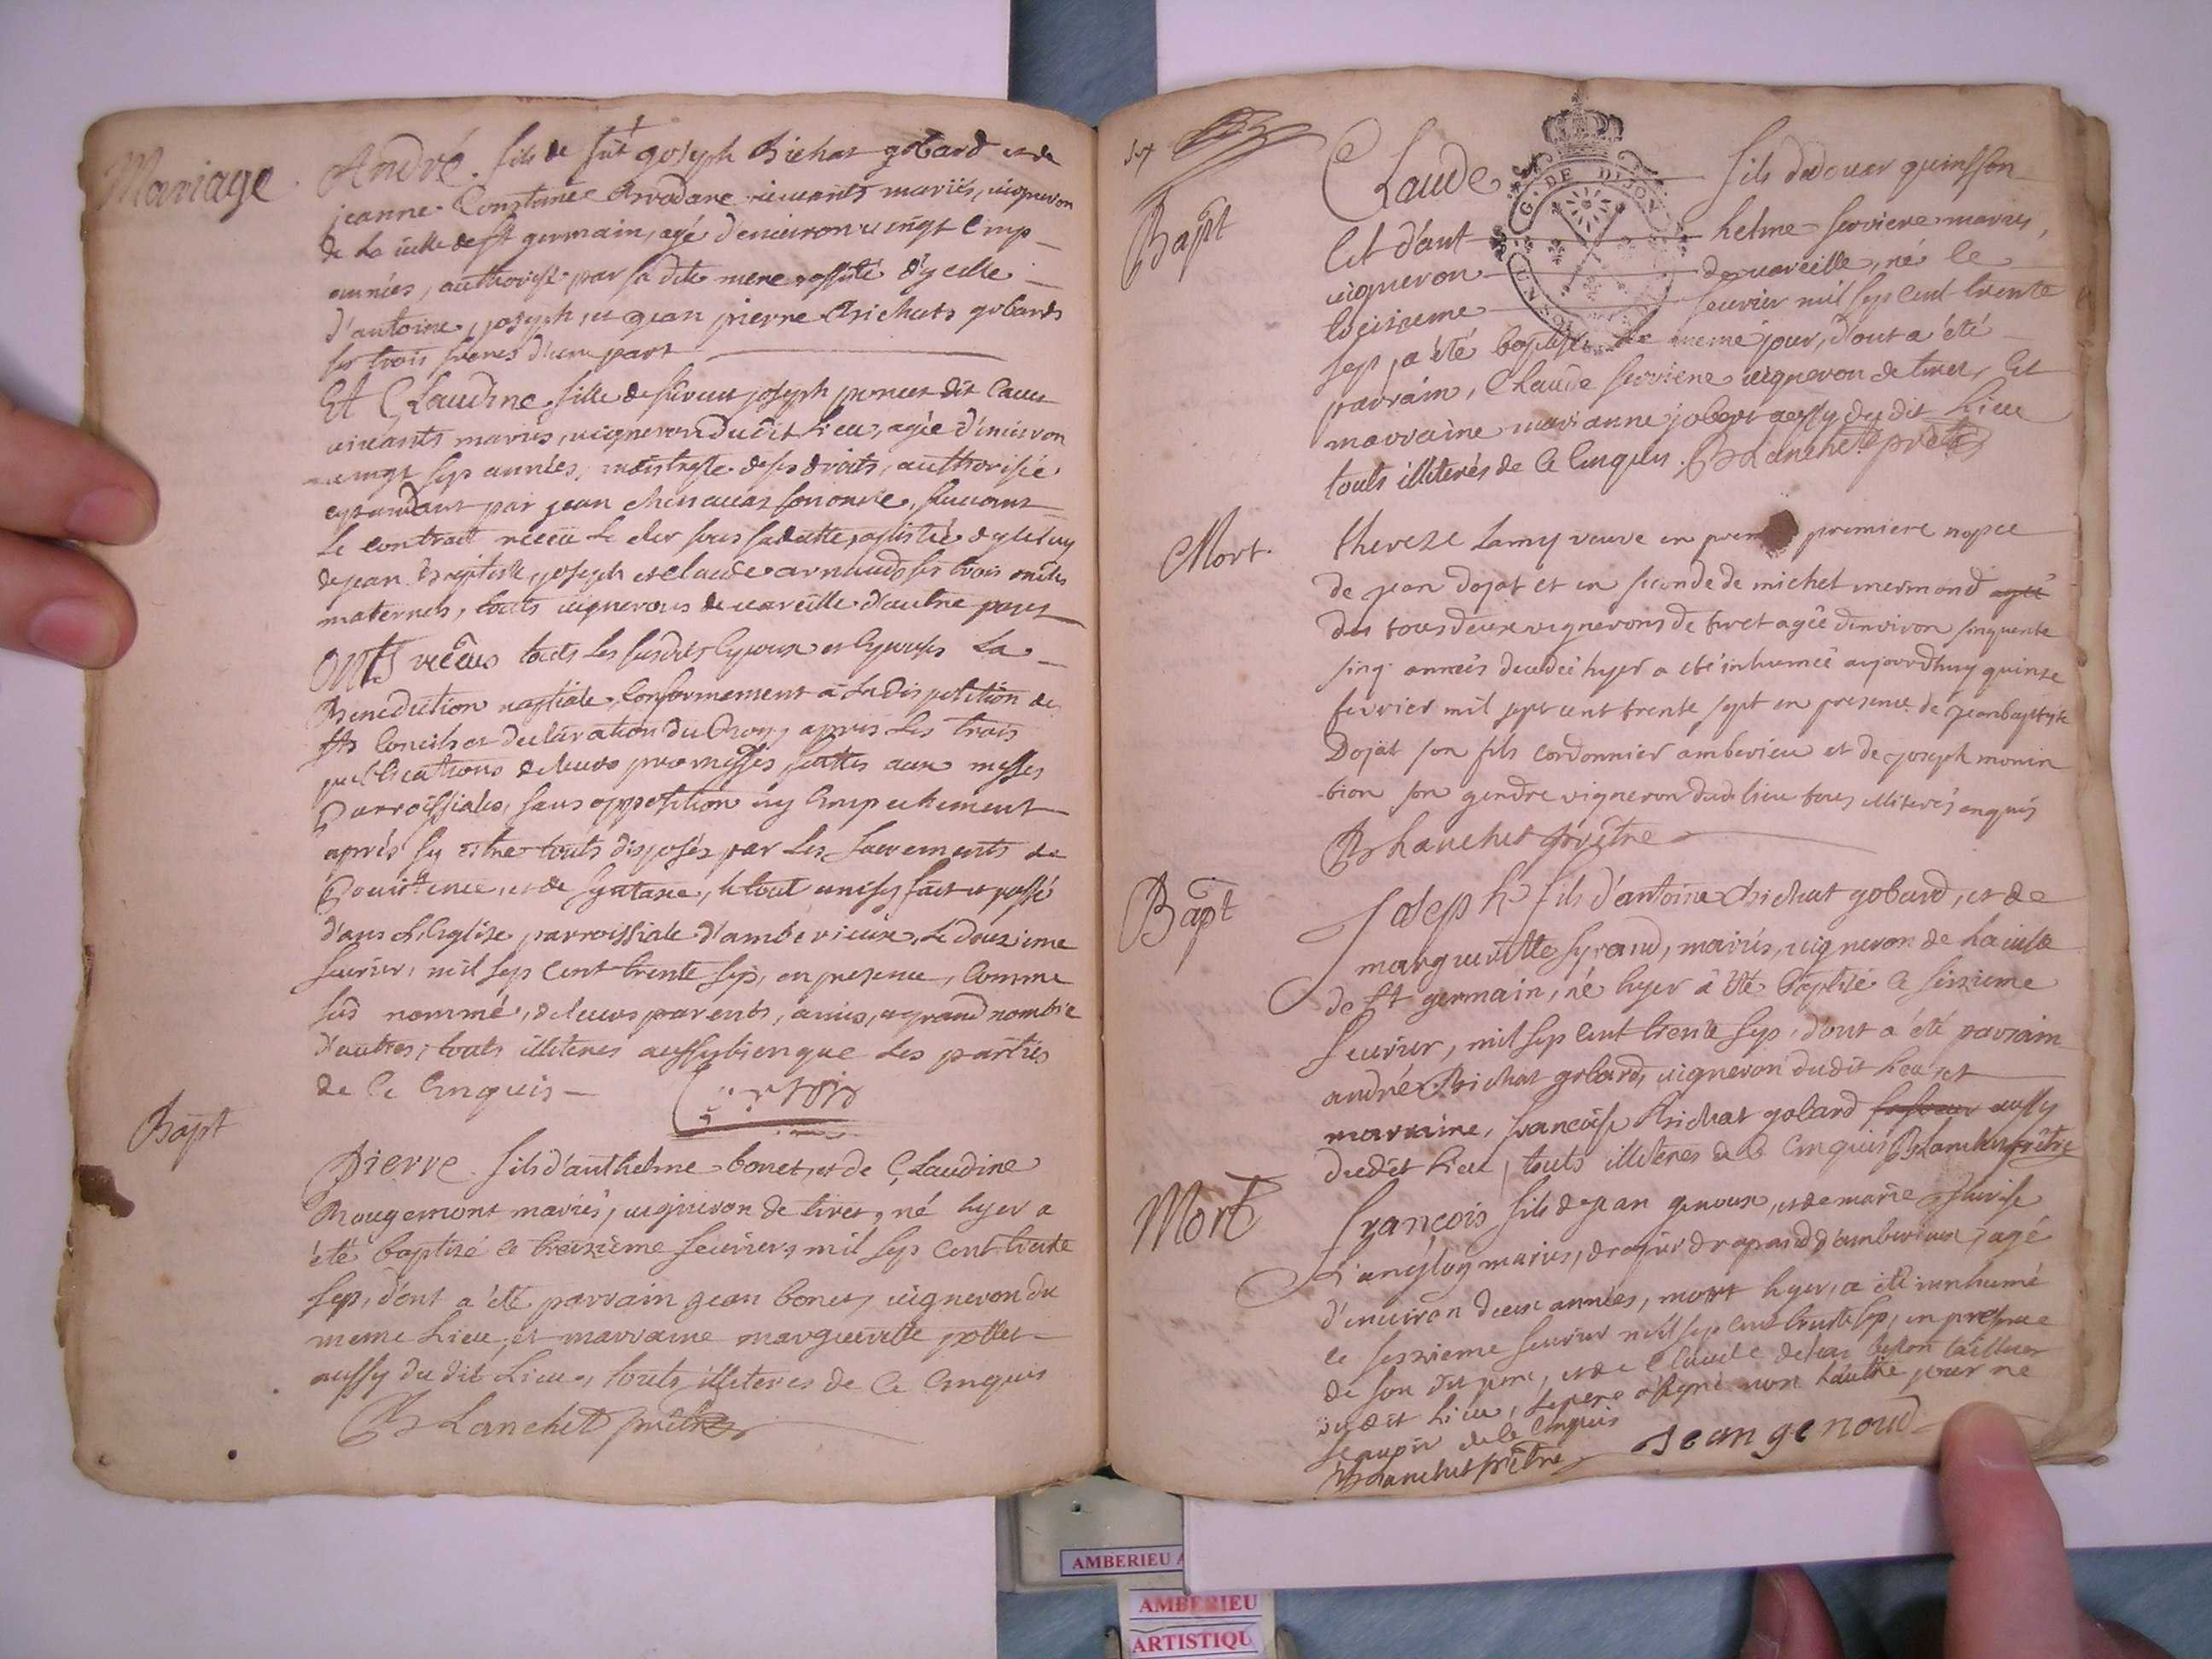 Mariage
André fils de fût joseph Richat gobard et de
jeanne Constance vivants mariés, vigneron
de la ville de st germain, agé d'environ vingt cinq
années, authorisé par sa dite mere assisté d'ycelle
d'antoine, joseph, et jean pierre Richats gobards
ses trois freres d'une part
Et Claudine fille de joseph poncet dit
vivants mariés, vigneron dudit Lieu, agée d'environ
vingt sep années, maistresse de ses droits, authorisée
cependant par jean son oncle, suivant
Le contract receu Le
de jean baptiste, joseph et claude arnauds ses trois oncles
maternels, touts vignerons de vareille d'autre part
Onts receus touts Les susdits Epoux et Epouses La
Benediction nuptiale, Conformement à La disposition des
Sts Conciles et declaration du Roy, apres Les trois
publications de leurs promesses faittes aux messes
Parroissiales, sans opposition ny Empechement
après sy estre touts disposés par Les Sacrements de
Penitence, et de Syntaxe, le tout ainsy fait et passé
d'ans L'Eglise parroissiale d'amberieux, Le douzieme
feuvrier, mil sep Cent trente sep, en presence, Comme
sus nommé, de leurs parents, amis, et grand nombre
d'autres, touts illiteres aussy bien que Les parties
de Ce Enquis
Bapt
Pierre fils d'anthelme bonet, et de Claudine
Rougemont mariés, vigneron de tiret, né hyer a
été baptisé ce treizieme feuvrier, mil sep Cent trente
sep, d'ont a été parrain jean bonet, vigneron du
meme Lieu, et marraine margueritte pollet
aussy du dit Lieu, touts illiteres de Ce Enquis
Blanchet prêtre
Bapt
Claude fils d'edouar quinsson
Et d'ant helme serviere mariés,
vigneron de vareille, né le
treizieme feuvrier mil sep Cent trente
sep, a été baptisé le meme jour, d'ont a été
parrain, Claude serviere vigneron de tiret, Et
marraine marianne jobert aussy du dit Lieu
touts illiterés de Ce Enquis. Blanchet prêtre
Mort.
thereze Lamy veuve en premiere nopce
de jean dojat et en seconde de michel mermond agée
dus tous deux vignerons de tiret agée d'environ sinquente
sinq années decedée hyer a eté inhumée aujourdhuy quinze
fevrier mil sept cent trente sept en presence de jean baptiste
Dojat son fils cordonnier amberieu et de joseph monin
bion son gendre vigneron dud lieu tous illiterés enquis
Blanchet prêtre
Bapt
Joseph fils d'antoine Richat gobard, et de
marguerittte syrand, mariés, vigneron de La ville
de st germain, né hyer a été baptisé Ce seizieme
feuvrier, mil sep Cent trente sep, d'ont a été parrain
andré Richat gobard, vigneron du dit Lieu et
marraine, francoise Richat gobard sa soeur aussy
dudit Lieu, touts illiteres de Ce Enquis Blanchet prêtre
Mort
françois fils de jean genoux, et de marie
L'angloy mariés, drapier drapant d'amberieux, agé
d'environ deux années, mort hyer, a été innhumé
ce seszieme feuvrier mil sep Cent trente sep, en presence
de son dit pere, et de Claude tailleur
du dit Lieu, le pere a signé non L'autre pour ne
scavoir de Ce Enquis
Blanchet prêtre jean genoud
G. DE DIJON
AMBERIEU
AMBERIEU
ARTISTIQU